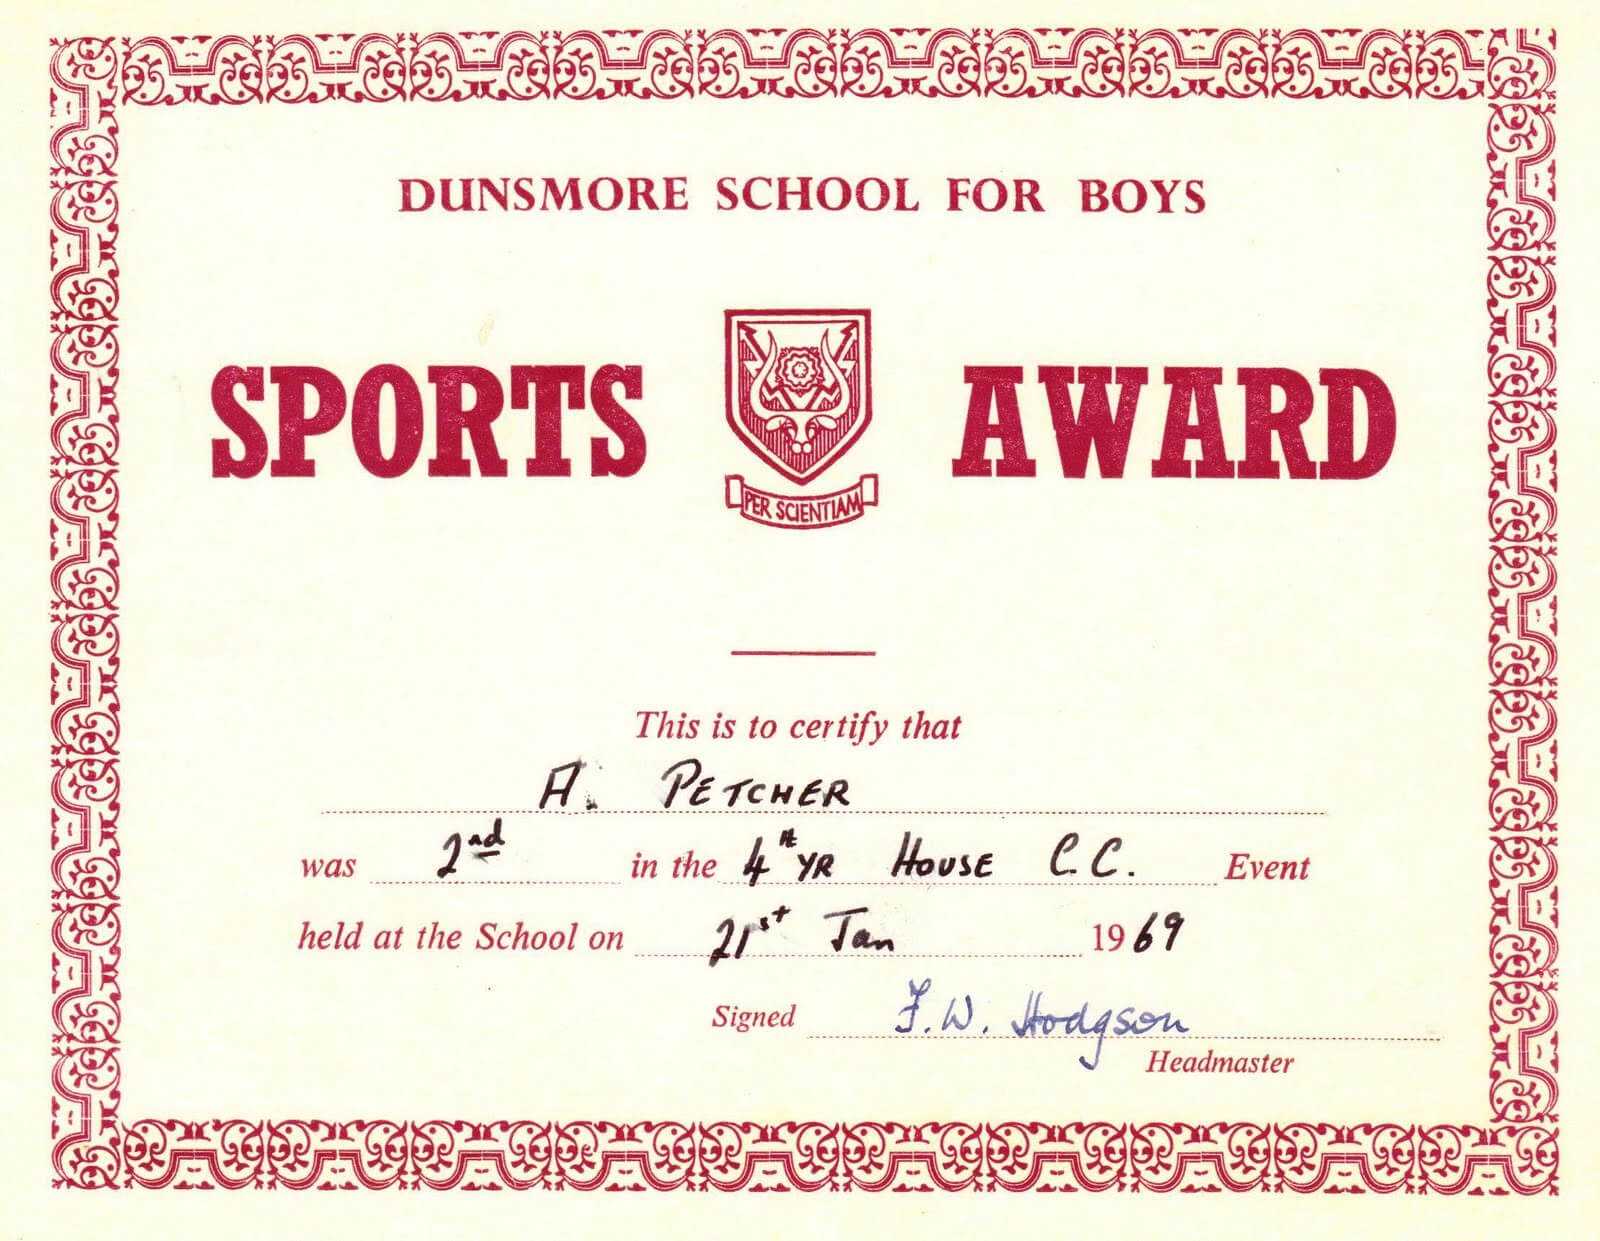 DUNSMORE SCHOOL FOR BOYS
SPORTS AWARD
PER SCIENTIAM
This is to certify that
A. PETCHER
was 2nd in the 4th YR HOUSE C.C. Event
held at the School on 21st Jan 1969
Signed F.W. Hodgson
Headmaster